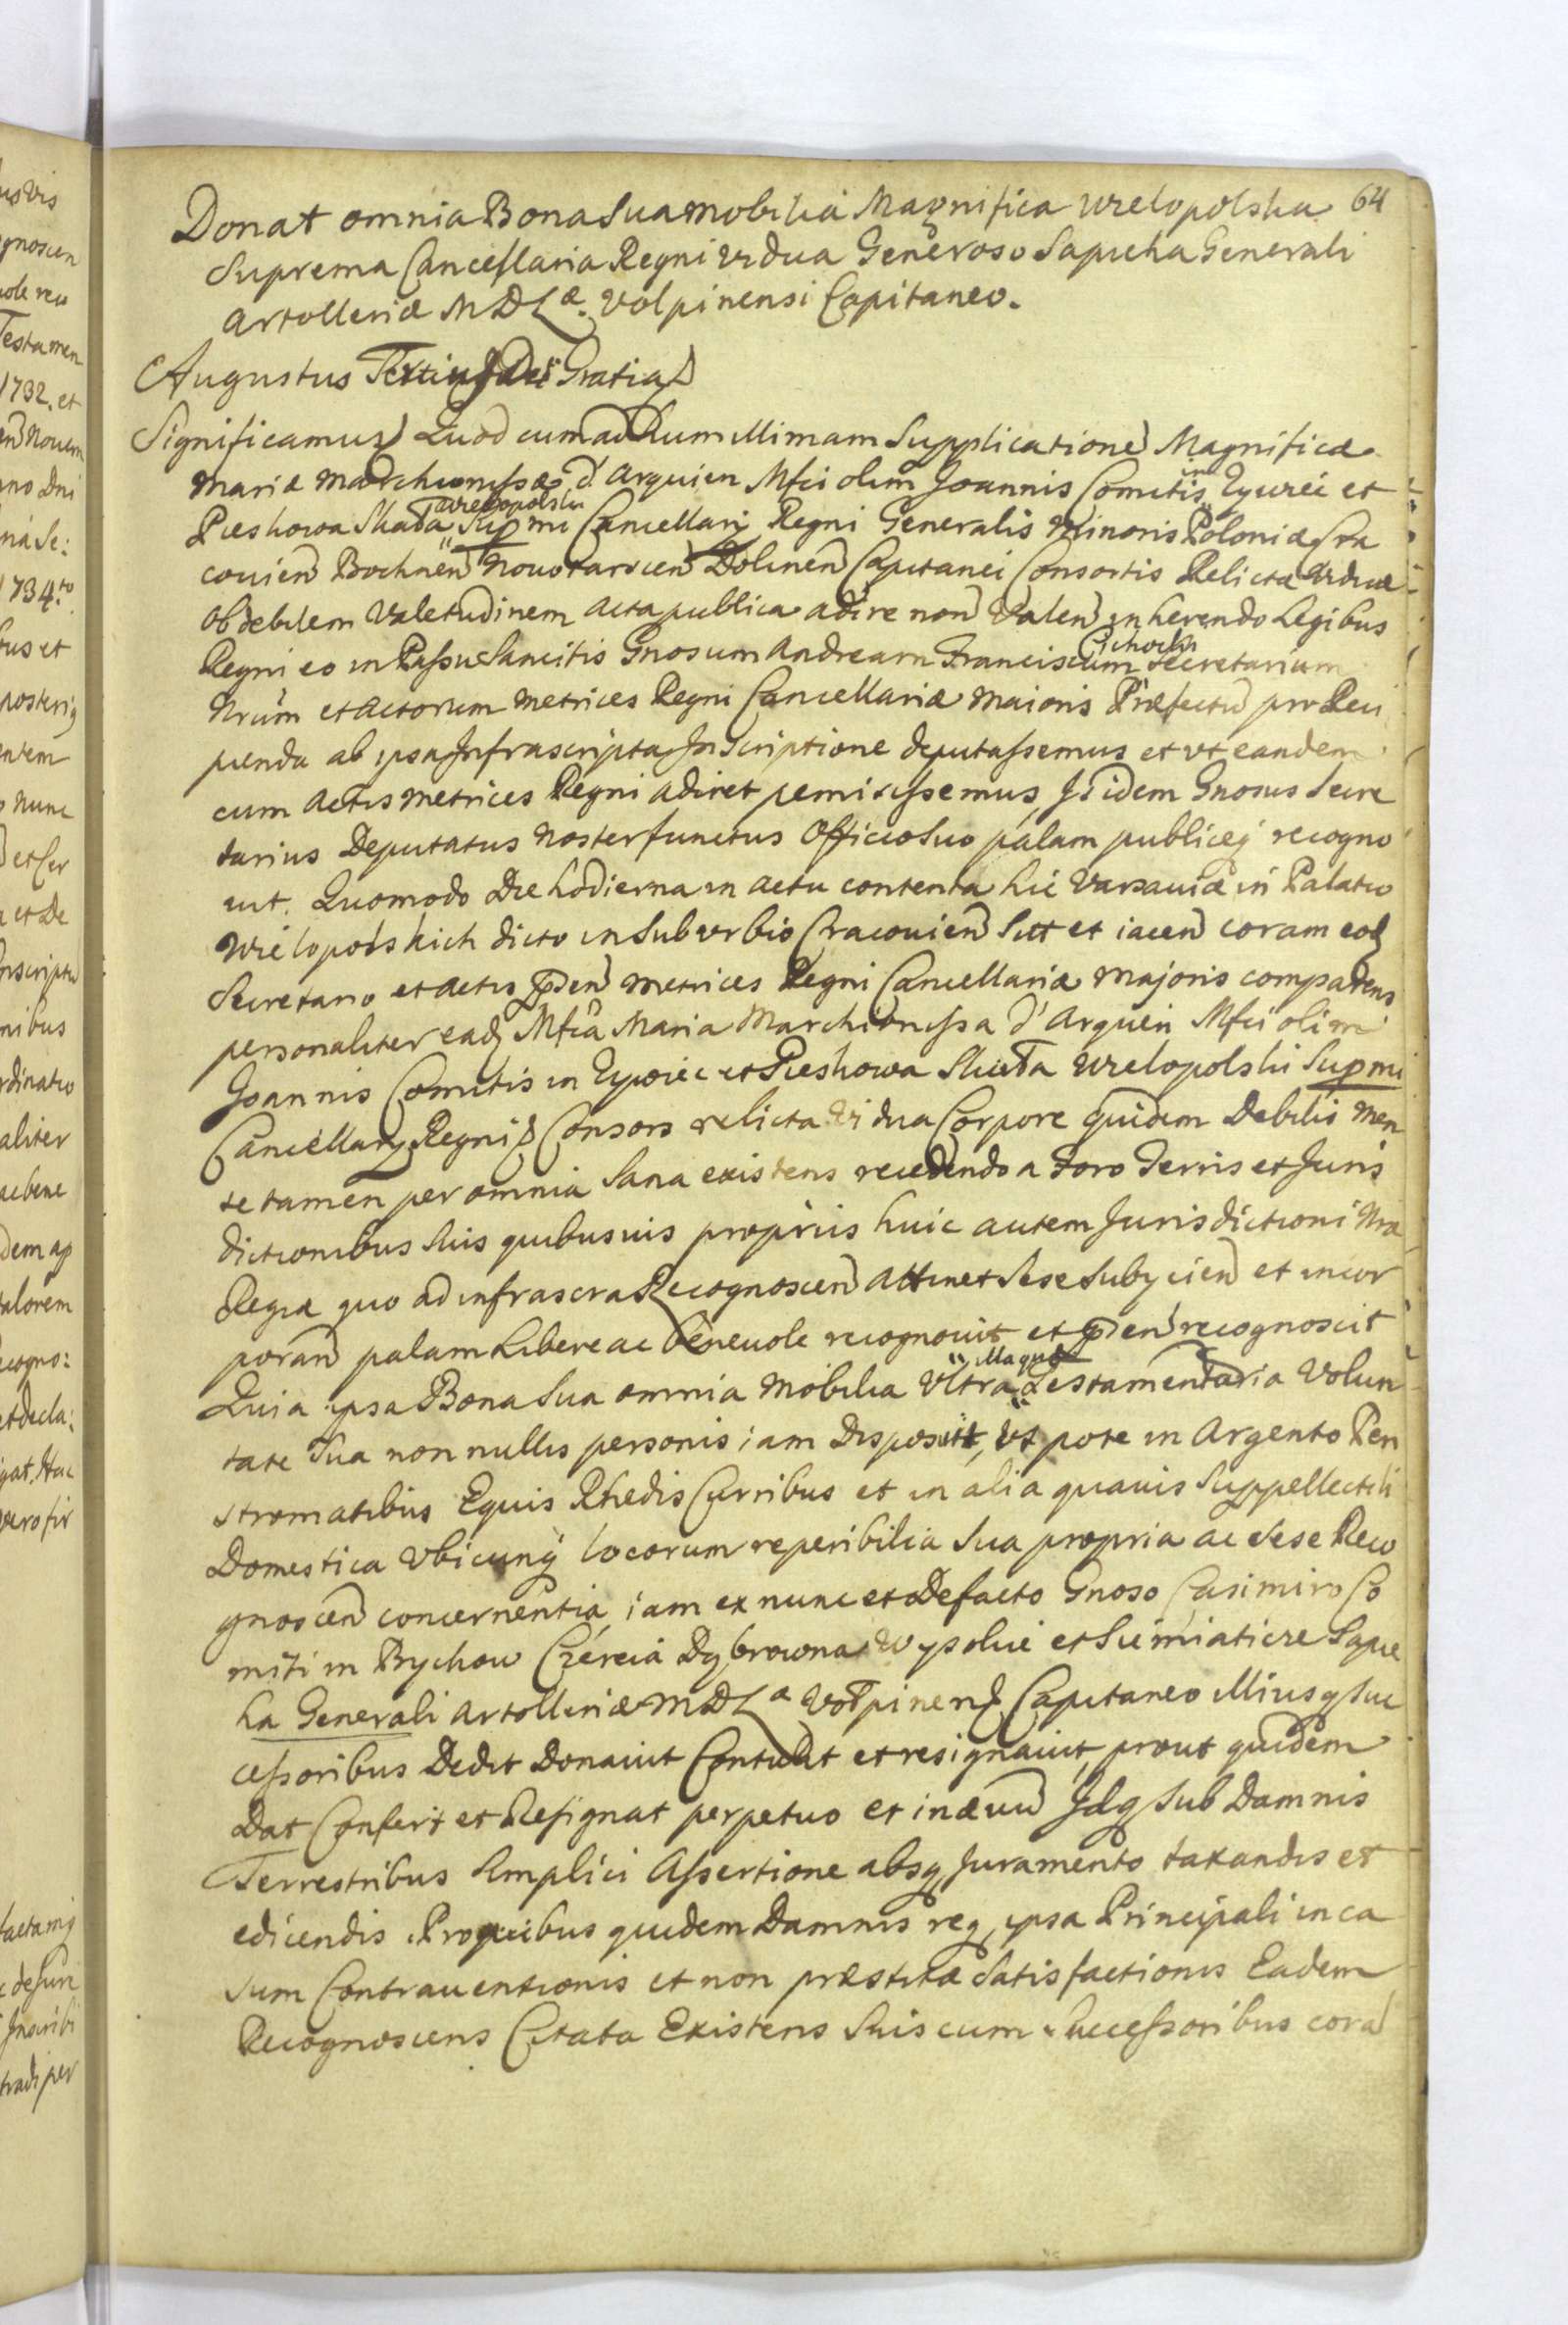 64
Donat omnia Bona Sua mobilia Magnifica Wielopolska
Suprema Cancellaria Regni Vidua Generoso Sapieha Generali
Artolleriæ M D L æ. Volpinensi Capitaneo.
Augustus Tertius Dei Gratia
Significamus Quod cum ad humillimam Supplicatione Magnificæ
Mariæ Marchionissæ d'Arquien Mfci olim Joannis Comitis in Zywiec et
Pieskowa Skała Wielopolski Supmi Cancellarij Regni Generalis Minoris Poloniæ Cra
covien Bochnen Novotarscen Dolinen Capitanei Consortis Relictæ Viduæ
ob debilem Valetudinem Acta publica adire non Valen inherendo Legibus
Regni eo in Passu Sancitis Gnosum Andream Franciscum Cichocki Secretarium
Nrum et Actorum Metrices Regni Cancellariæ Maioris Præfectu pro Reci
pienda ab ipsa Infrascripta Inscriptione deputassemus et vt eandem
cum Actis Metrices Regni adiret permisissemus, Is idem Gnosus Secre
tarius Deputatus Noster functus Officio Suo palam publiceq recogno
uit. Quomodo Die hodierna in Actu contenta hic Varsaviæ in Palatio
Wielopolskich dicto in Suburbio Cracovien Sitt et iacen coram eod
Secretario et Actis pnden Metrices Regni Cancellariæ Majoris comparens
personaliter ead Mfca Maria Marchionissa d'Arquein Mfci olim
Joannis Comitis in Zywiec et Pieskowa Skała Wielopolski Supmi
Cancellarij Regni Consors relicta Vidua Corpore quidem Debilis Men
te tamen per omnia Sana existens recedendo a Foro Terris et Juris
dictionibus Suis quibusuis proprijs huic autem Jurisdictioni Nra
Regiæ quo ad infrascra Recognoscen attinet Sese Subijcien et incor
poran palam Libere ac beneuole recognouit et pnden recognoscit
Quia ipsa Bona Sua omnia Mobilia Vltra Testamentaria Volun
tate Sua non nullis personis iam Disposuit, Vt pote in Argento Peri
stromatibus Equis Rhedis Curribus et in alia quauis Suppellectili
Domestica Vbicunq locorum reperibilia Sua propria ac Sese Reco
gnoscen concernentia iam ex nunc et Defacto Gnoso Casimiro Co
miti in Bychow Czereia Dąbrowna Wysokie et Siemiaticze Sapie
ha Generali Artolleriæ M D L æ Volpinen Capitaneo illiusq Suc
cessoribus Dedit Donauit Contulit et resignauit, prout quidem
Dat Confert et Resignat perpetuo et in æuu Idq Sub Damnis
Terrestribus Simplici Assertione absq Juramento taxandis et
edicendis. Pro quibus quidem Damnis req ipsa Principali in ca
sum Contrauentionis et non præstitæ Satisfactionis Eadem
Recognoscens Citata Existens Suis cum Successoribus cora